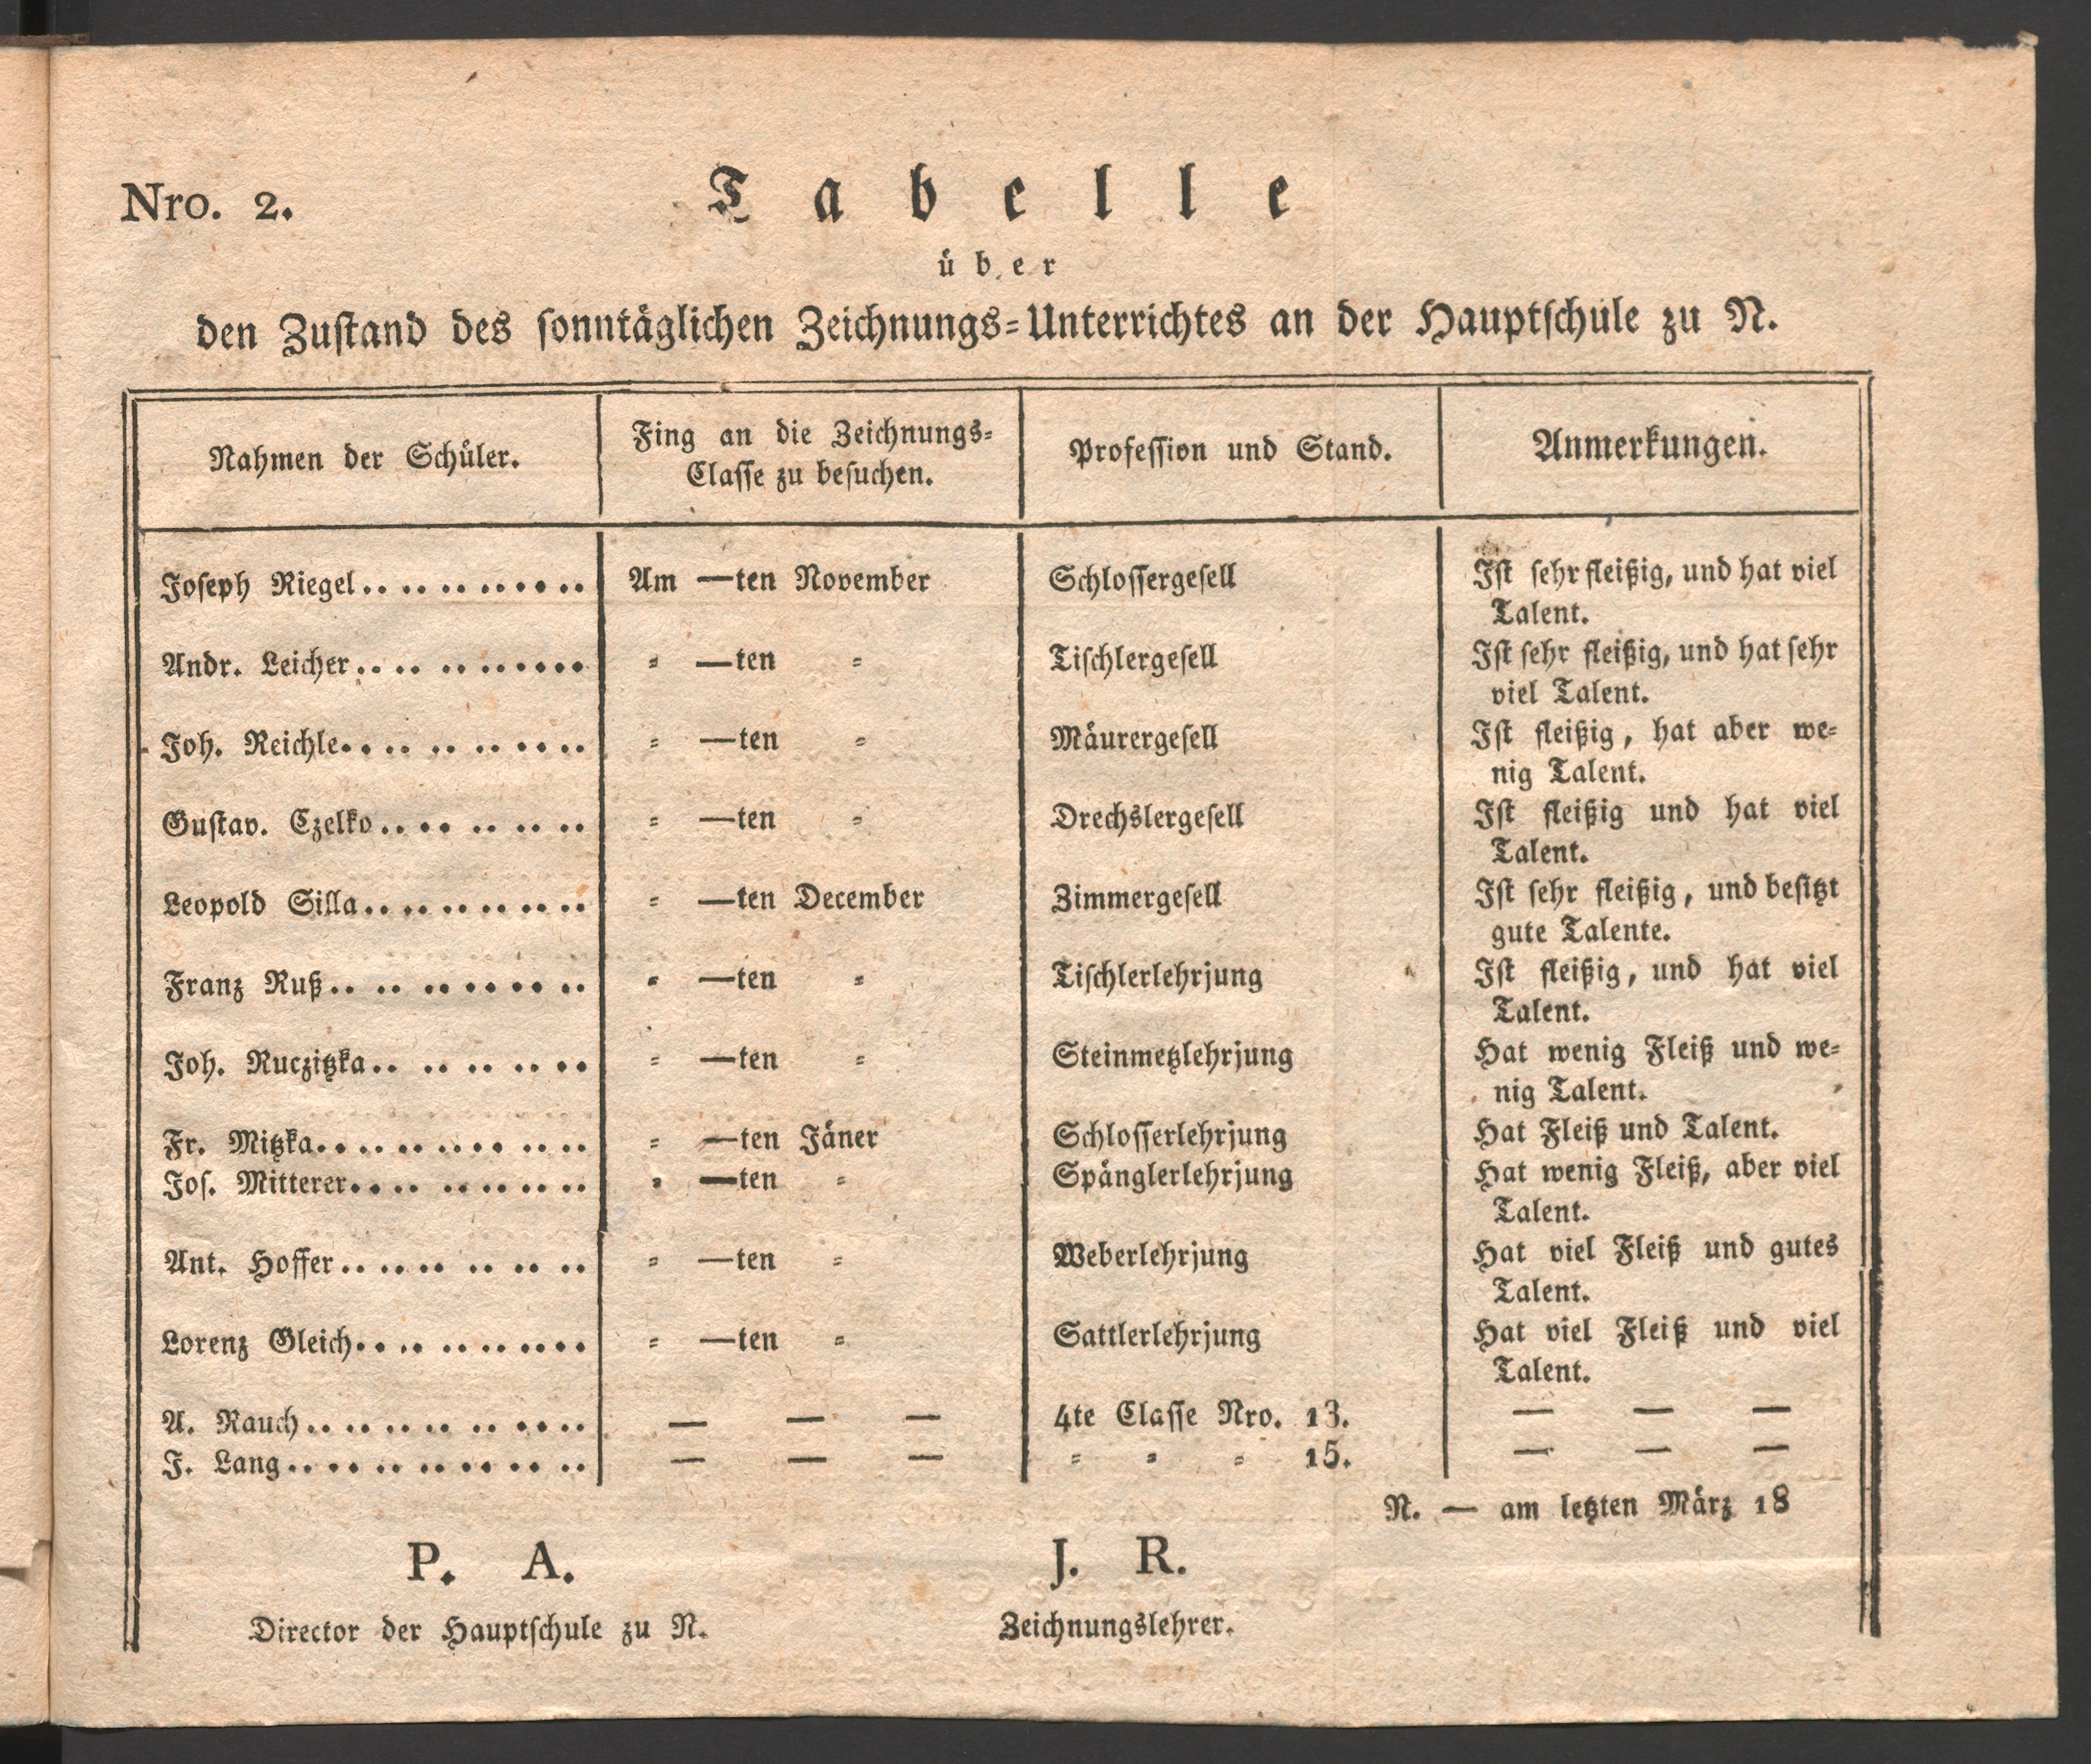 Nro. 2.
Tabelle
über
den Zustand des sonntäglichen Zeichnungs=Unterrichtes an der Hauptschule zu N.
Nahmen der Schüler. Fing an die Zeichnungs= Profession und Stand. Anmerkungen.
Classe zu besuchen.
Joseph Riegel.. .. .. .. .. .. Am —ten November Schlossergesell Ist sehr fleißig, und hat viel
Talent.
Andr. Leicher.. .. .. .. .. .. = —ten = Tischlergesell Ist sehr fleißig, und hat sehr
viel Talent.
Joh. Reichle.. .. .. .. .. .. = —ten = Mäurergesell Ist fleißig, hat aber we=
nig Talent.
Gustav. Czelko.. .. .. .. .. = —ten = Drechslergesell Ist fleißig und hat viel
Talent.
Leopold Silla.. .. .. .. .. .. = —ten December Zimmergesell Ist sehr fleißig, und besitzt
gute Talente.
Franz Ruß.. .. .. .. .. .. = —ten = Tischlerlehrjung Ist fleißig, und hat viel
Talent.
Joh. Ruczitzka.. .. .. .. .. = —ten = Steinmetzlehrjung Hat wenig Fleiß und we=
nig Talent.
Fr. Mitzka.. .. .. .. .. .. .. = —ten Jäner Schlosserlehrjung Hat Fleiß und Talent.
Jos. Mitterer.. .. .. .. .. .. = —ten = Spänglerlehrjung Hat wenig Fleiß, aber viel
Talent.
Ant. Hoffer.. .. .. .. .. .. = —ten = Weberlehrjung Hat viel Fleiß und gutes
Talent.
Lorenz Gleich.. .. .. .. .. .. = —ten = Sattlerlehrjung Hat viel Fleiß und viel
Talent.
A. Rauch.. .. .. .. .. .. .. — — — 4te Classe Nro. 13. — — —
J. Lang.. .. .. .. .. .. .. .. — — — = = = 15. — — —
N. — am letzten März 18
P. A. J. R.
Director der Hauptschule zu N. Zeichnungslehrer.